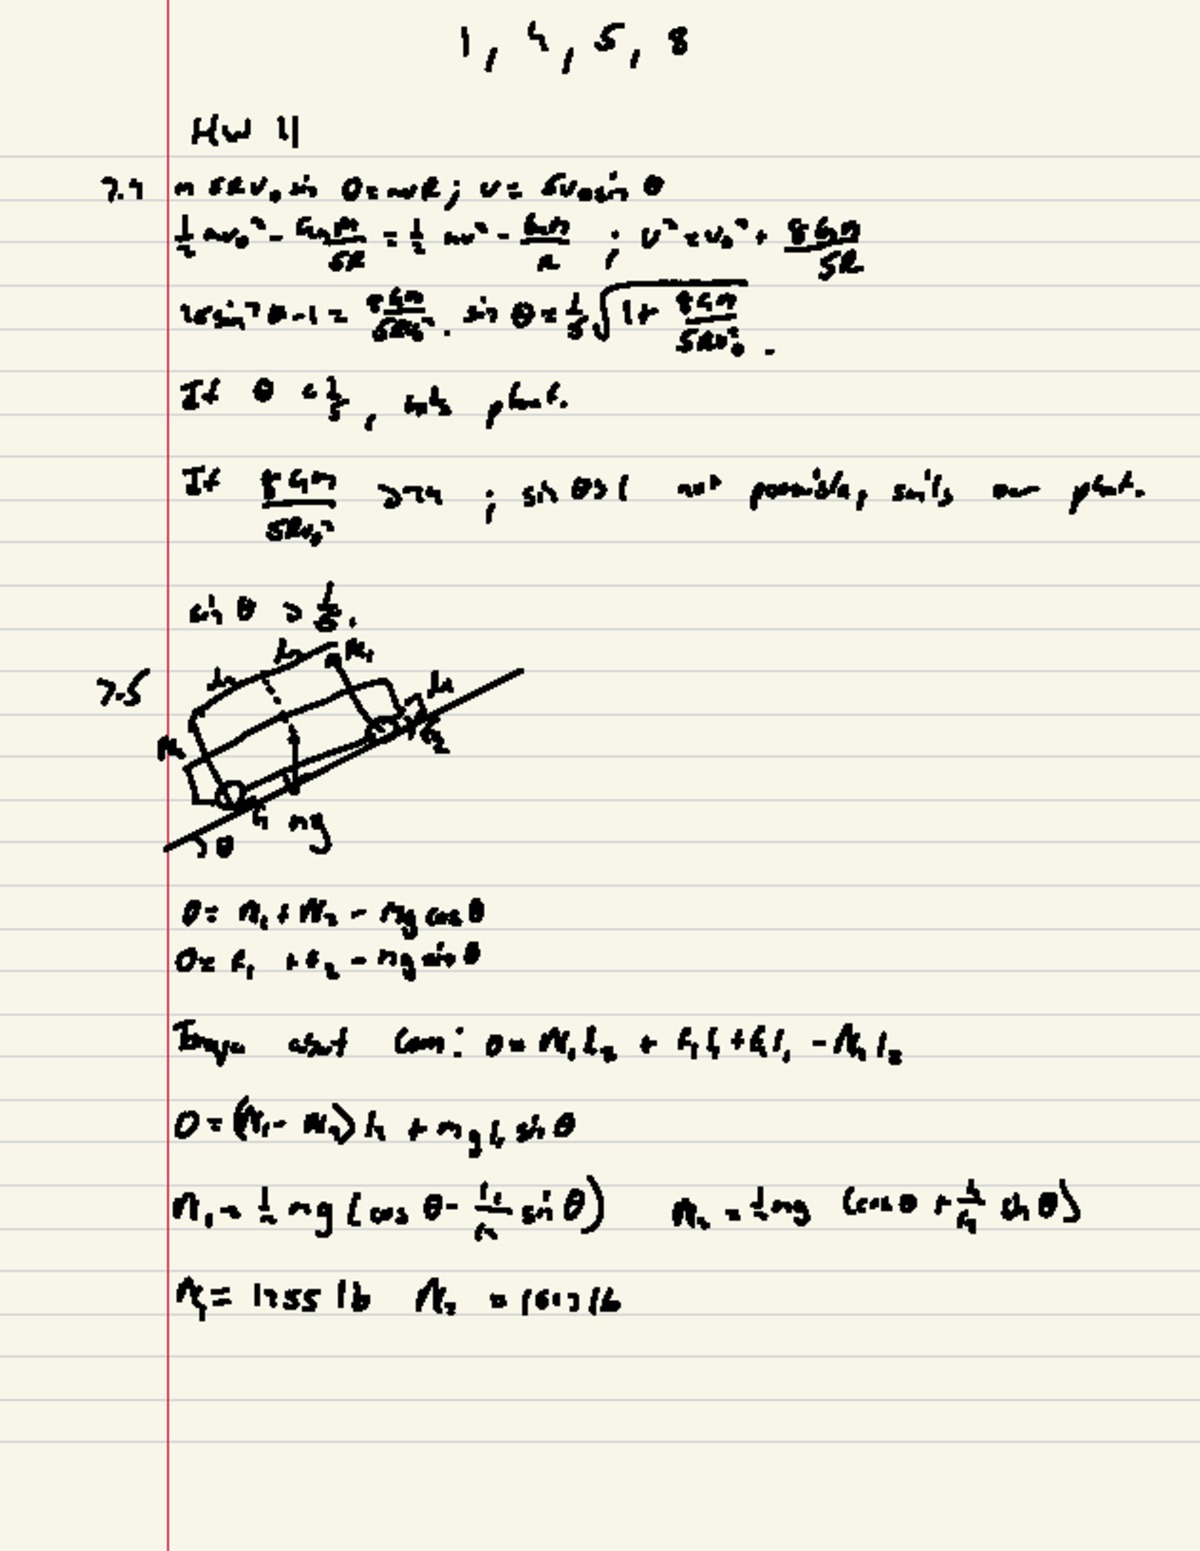 1, 4, 5, 8
HW 11
7.4 m 5R v₀ sin θ = mvR; v = 5v₀ sin θ
½ mv₀² - GmM/5R = ½ mv² - GmM/R ; v² = v₀² + 8GM/5R
25 sin² θ - 1 = 8GM/5Rv₀². sin θ = 1/5 √(1 + 8GM/5Rv₀²).
If θ < 1/5, hits planet.
If 8GM/5Rv₀² > 24 ; sin θ > 1 not possible, sails over planet.
sin θ > 1/5.
7.5
l₂ l₂ N₁
l₁
N₂ f₂
f₁ mg
θ
0 = N₁ + N₂ - mg cos θ
0 = f₁ + f₂ - mg sin θ
Torque about Com: 0 = N₁l₂ + f₁l₁ + f₂l₁ - N₂l₂
0 = (N₁ - N₂)l₂ + mgl₁ sin θ
N₁ = ½ mg (cos θ - l₁/l₂ sin θ) N₂ = ½ mg (cos θ + sin θ)
N₁ = 1255 lb N₂ =